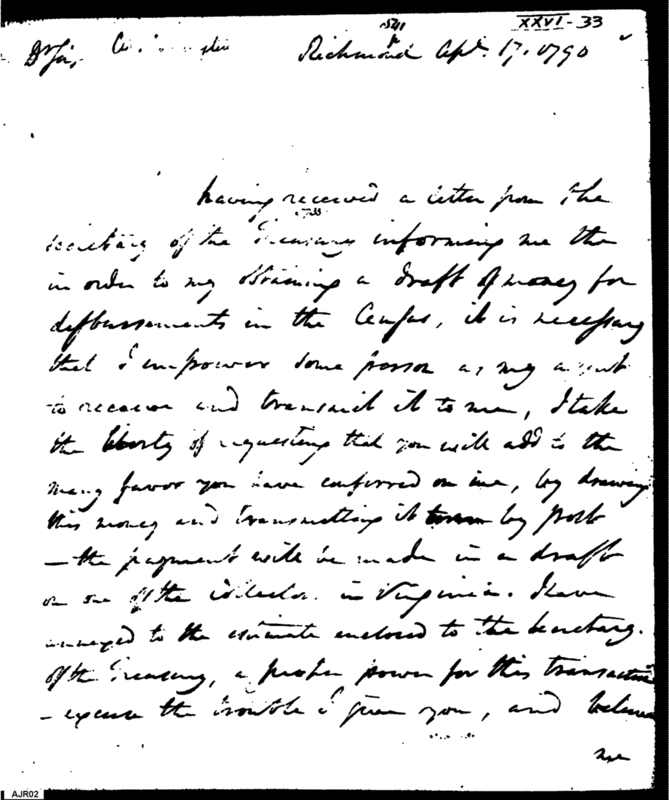 XXVI - 33
Dr Sir, Richmond Apl. 17. 1790
having received a letter from the
secretary of the Treasury informing me the
in order to my obtaining a draft of money for
disbursements in the Census, it is necessary
that I impower some person as my agent
to receive and transmit it to me, I take
the liberty of requesting that you will add to the
many favor you have conferred on me, by drawing
this money and transmitting it by post
— the payment will be made in a draft
on one of the collectors in Virginia. I have
annexed to the estimate enclosed to the Secretary
of the Treasury, a proper power for this transaction
— excuse the trouble I give you, and believe
me
AJR02